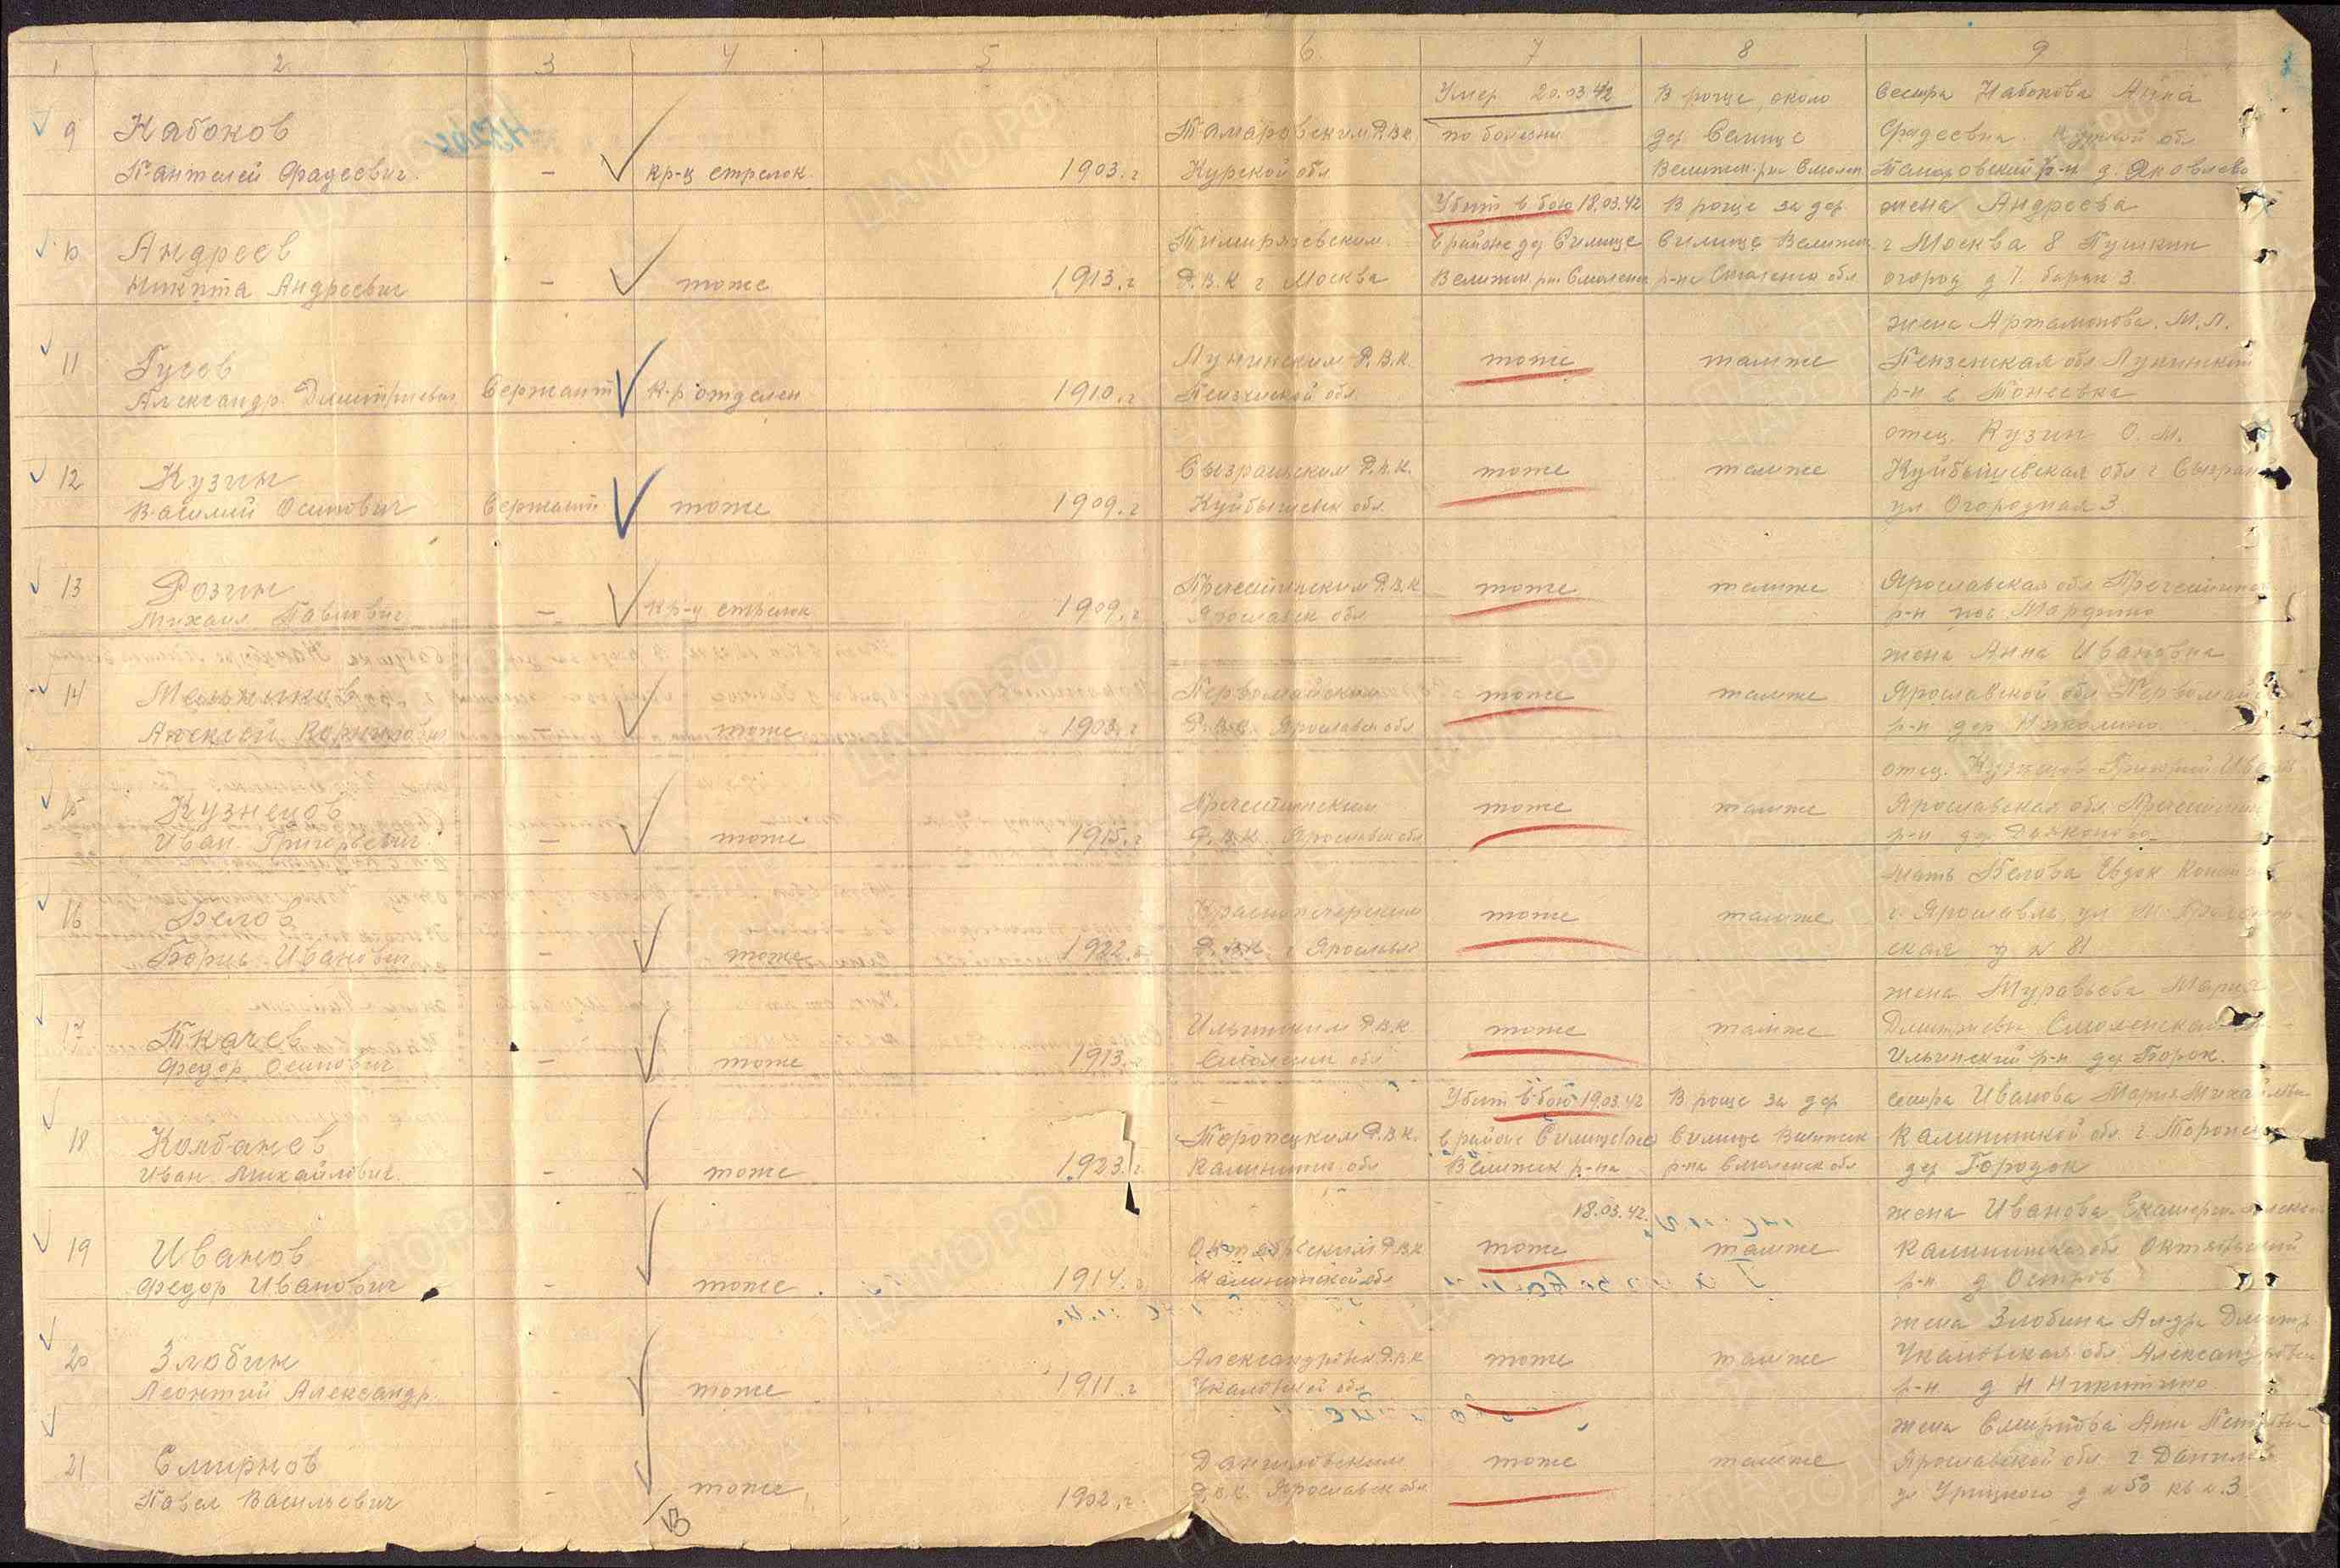 1 2 3 4 5 6 7 8 9
Умер 20.03.42 В роще около Сестра Набокова Анна
9 Набоков Томаровским Р.В.К. по болезни дер Селище Фадеевна Курской обл
Пантелей Фадеевич. – кр-ц стрелок 1903.г Курской обл Велижск. р-на Смолен Томаровский р-н д. Яковлево
Убит в бою 18.03.42 В роще за дер. жена Андреева
10 Андреев Тимирязевским в районе дер Силище Силище Велижск г Москва 8 Пушкин
Никита Андреевич – тоже 1913.г Р.В.К г Москва Велижск. р-н Смоленск р-на Смоленск обл огород д 7 барак 3.
жена Артамонова. М.Л.
11 Гусев Лунинским Р.В.К. тоже тамже Пензенская обл Лунинский
Александр Дмитриевич Сержант к-р отделен 1910.г Пензенской обл р-н с Тонеевка
отец Кузин О.М.
12 Кузин Сызранским Р.В.К. тоже тамже Куйбышевская обл г Сызрань
Василий Осипович Сержант тоже 1909.г Куйбышевск обл. ул Огородная 3
13 Розин Пречистинским Р.В.К тоже тамже Ярославская обл Пречистинск
Михаил Павлович – кр-ц стрелок 1909.г Ярославск обл р-н пос
жена Анна Ивановна
14 Мельников Первомайским тоже тамже Ярославской обл Первомайс
Алексей – тоже 1903.г Р.В.К. Ярославск обл р-н дер Николино
отец. Кузнецов Григорий Иван
15 Кузнецов Пречистинским тоже тамже Ярославская обл Пречистин
Иван Григорьевич – тоже 1915.г Р.В.К. Ярославск обл р-н дер Дьяконово
мать Белова Евдок Конст
16 Белов Красноперекским тоже тамже г. Ярославль ул
Борис Иванович – тоже 1922.г Р.В.К. г Ярославль ская д № 81
жена Муравьева Мария
17 Ткачев Ильинским Р.В.К тоже тамже Дмитриевн Смоленская
Федор Осипович – тоже 1913.г Смоленск обл Ильинский р-н дер Борок.
Убит в бою 19.03.42 В роще за дер сестра Иванова Мария Михайловн
18 Колбанев Торопецким Р.В.К. в районе Силище Силище Велижск Калининской обл. г. Торопец
Иван Михайлович. – тоже 1923.г Калининск обл Велижск р-на р-на Смоленск обл дер Городок
18.03.42. жена Иванова Екатерина
19 Иванов Октябрьским Р.В.К тоже тамже Калининская обл Октябрьский
Федор Иванович – тоже 1914.г Калининской обл р-н д Остров
жена Злобина Ал-др Дмитр.
20 Злобин Александровск Р.В.К тоже тамже Чкаловская обл Александровск
Леонтий Александр. – тоже 1911.г Чкаловской обл р-н д Н Никитино
жена Смирнова Анна Петровна
21 Смирнов Даниловским тоже тамже Ярославской обл г Данилов
Павел Васильевич – тоже 1902.г. Р.В.К. Ярославск обл ул Урицкого д № 50 кв №.3
13